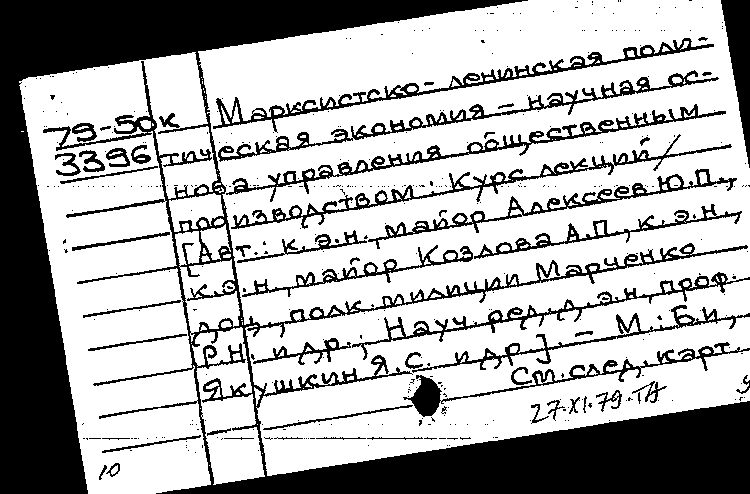 79-50к
3396
Марксистско-ленинская поли-
тическая экономия - научная ос-
нова управления общественным
производством: Курс лекций /
[Авт.: к.э.н., майор Алексеев Ю.П.,
к.э.н., майор Козлова А.П., к.э.н.,
доц., полк. милиции Марченко
Р.Н. и др.; Науч. ред. д.э.н., проф.
Якушкин Я.С. и др]. - М.: Б.и,
См. след. карт.
27.XI.79.ТА
10